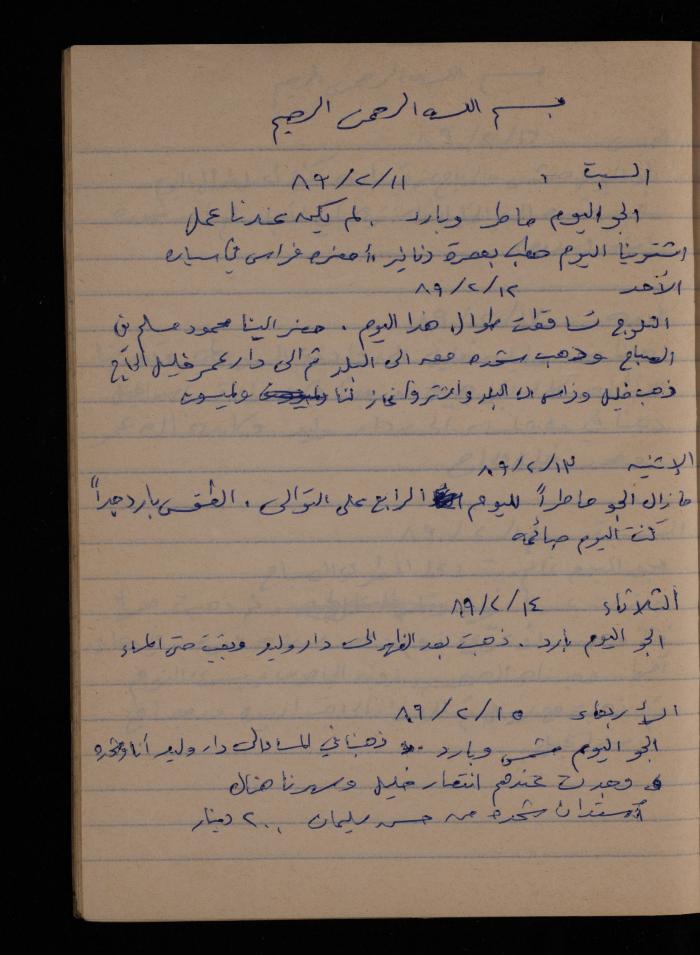 بسم الله الرحمن الرحيم
السبت : ٨٩/٢/١١
الجو اليوم ماطر وبارد . لم يكن عندنا عمل
اشترينا اليوم حطب بعشرة دنانير أحضره فراس في سياره
الأحد ٨٩/٢/١٢
الثلوج تساقطت طوال هذا اليوم . حضر الينا محمود مسلم في
الصباح وذهب شحده معه الى البلد ثم الى دار عمر خليل الحاج
ذهب خليل وفراس الى البلد واشتروا غاز لنا ولميسون
الإثنين ٨٩/٢/١٣
ما زال الجو ماطراً لليوم الرابع على التوالي . الطقس بارد جداً
كنت اليوم صائمه
الثلاثاء ٨٩/٢/١٤
الجو اليوم بارد . ذهبت بعد الظهر الى دار وليد وبقيت حتى المساء
الأربعاء ٨٩/٢/١٥
الجو اليوم مشمس وبارد . ذهبنا في المساء الى دار وليد أنا وشحده
وجدت عندهم انتصار خليل وسهرنا هناك
استدان شحده من حسن سليمان ٢٠٠ دينار